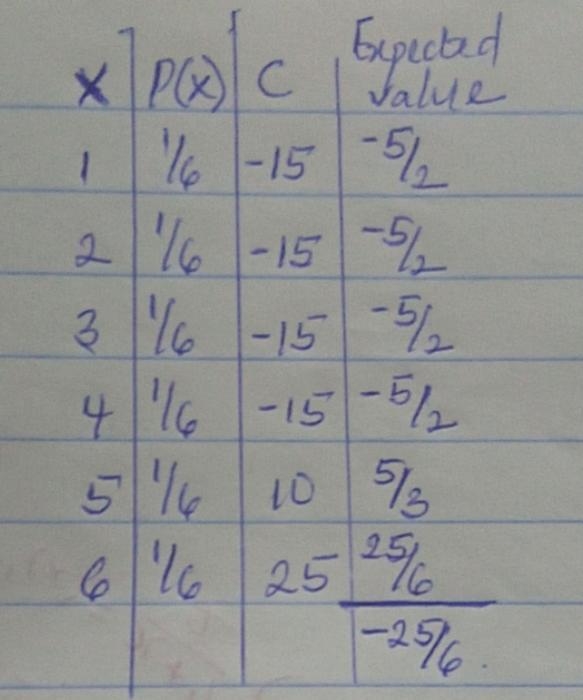 X P(x) C Expected value
1 1/6 -15 -5/2
2 1/6 -15 -5/2
3 1/6 -15 -5/2
4 1/6 -15 -5/2
5 1/6 10 5/3
6 1/6 25 25/6
-25/6.